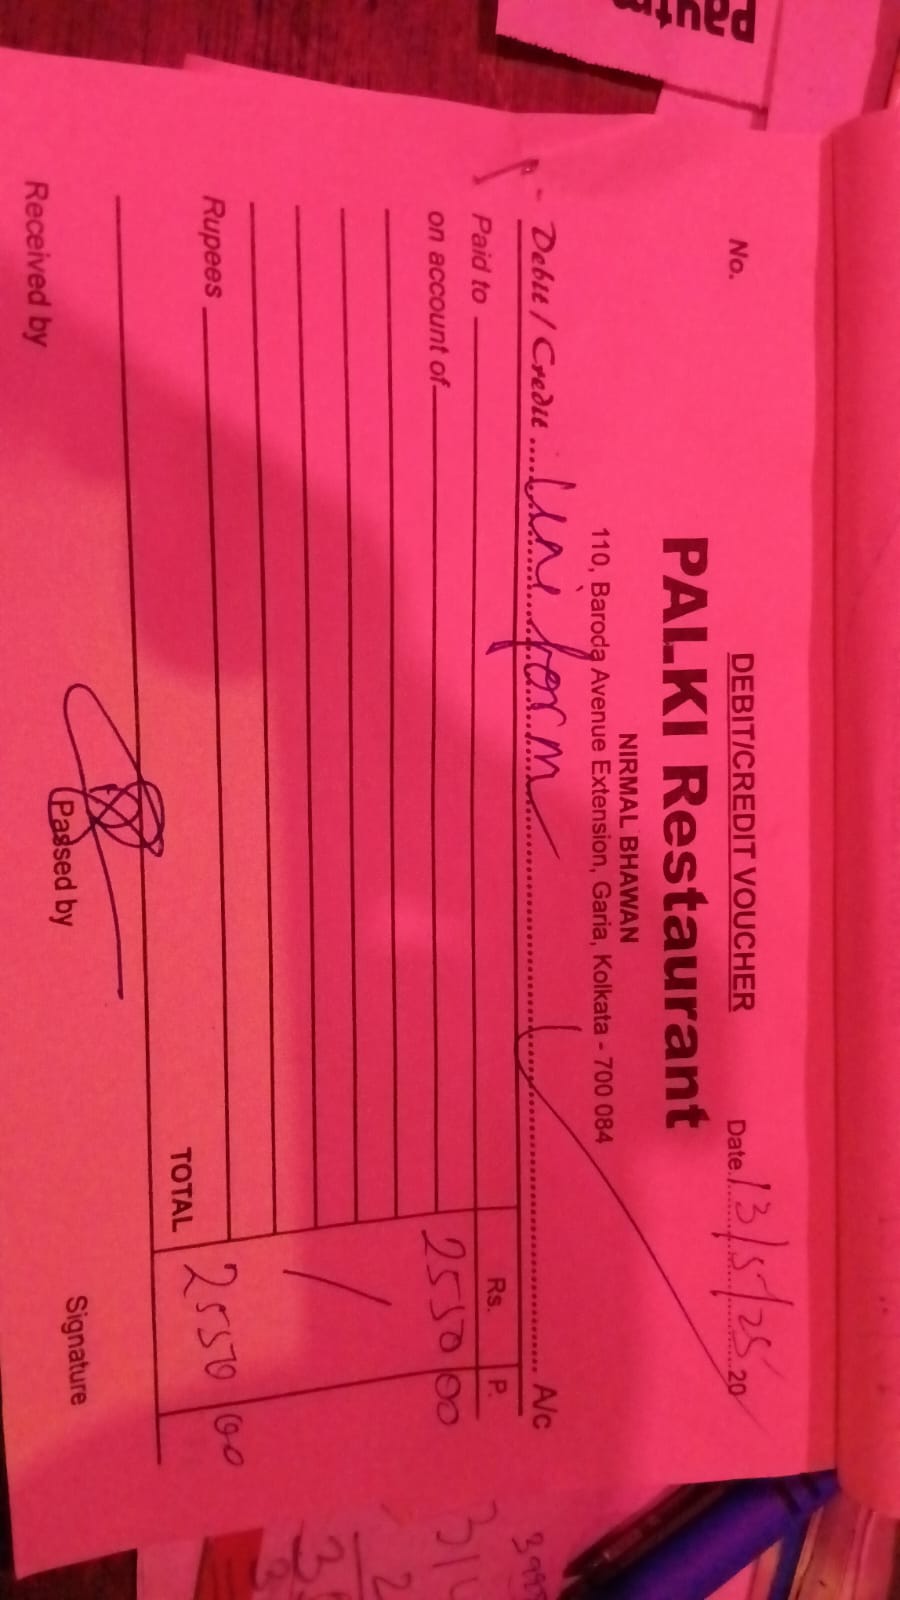 paytm
DEBIT/CREDIT VOUCHER
No. Date 13/5/25 20
PALKI Restaurant
NIRMAL BHAWAN
110, Baroda Avenue Extension, Garia, Kolkata - 700 084
Debit / Credit Uniform A/c
Paid to Rs. P.
on account of 2550 00
Rupees
TOTAL 2550 00
Received by Passed by Signature